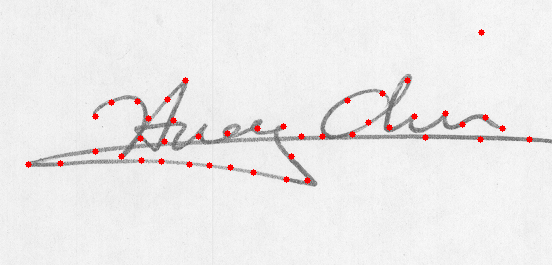 Huey Chun